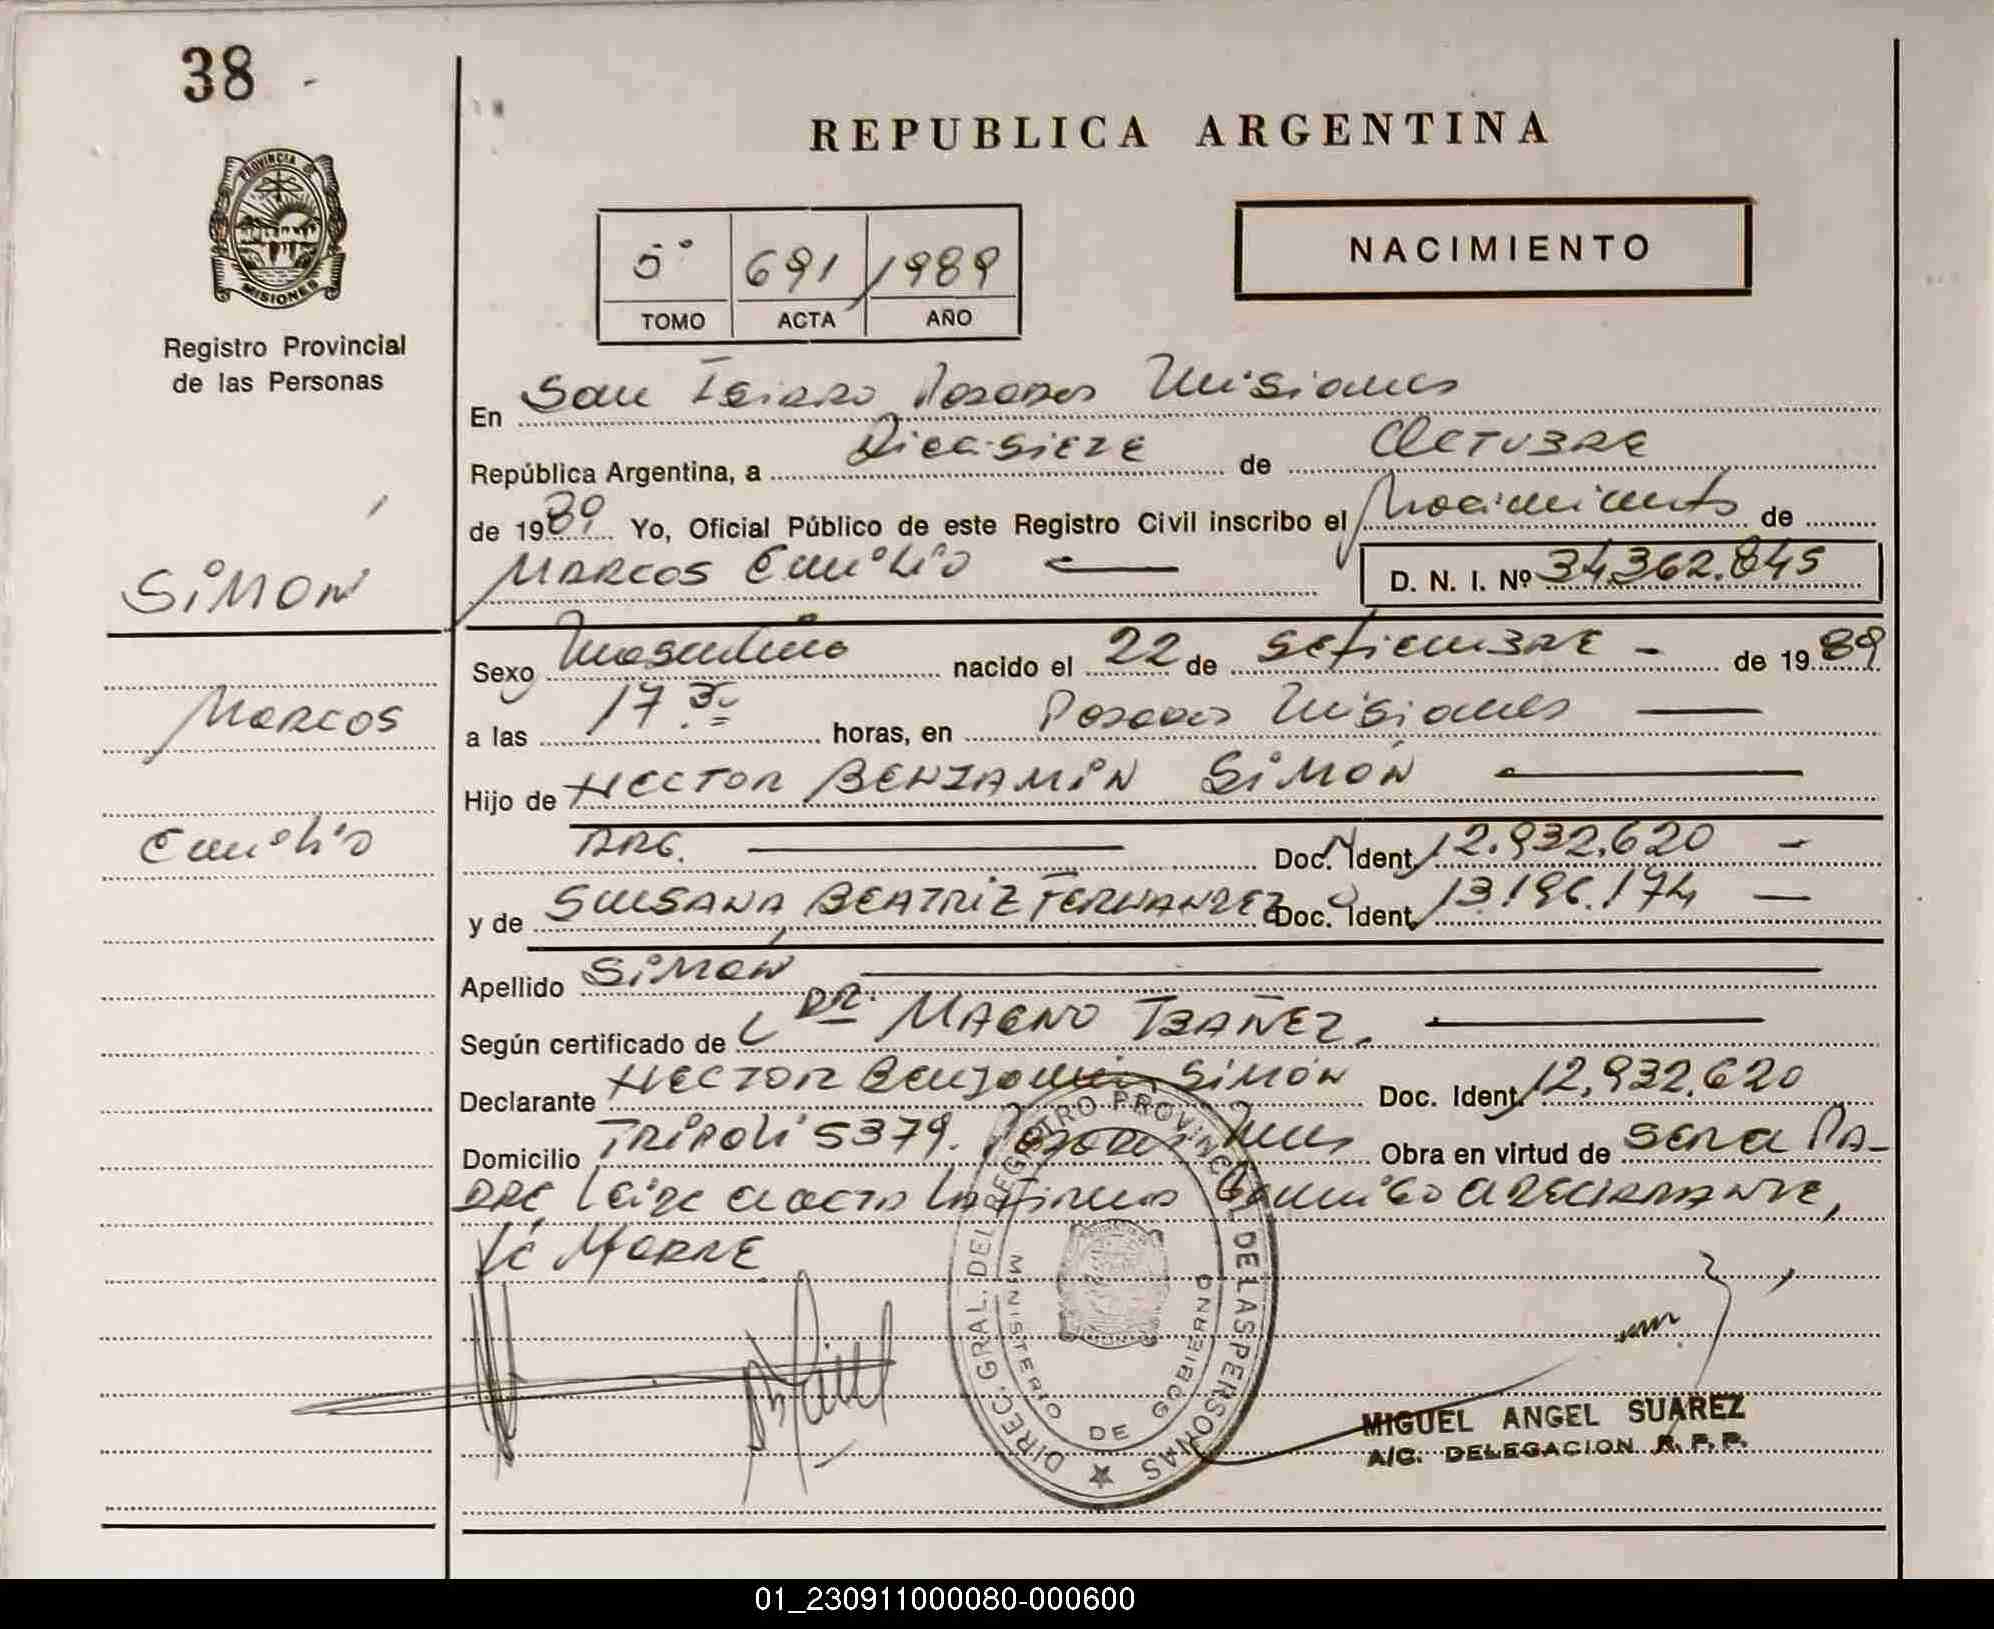 38 -
PROVINCIA DE
MISIONES
Registro Provincial
de las Personas
REPUBLICA ARGENTINA
5° 691 1989
TOMO ACTA AÑO
NACIMIENTO
En San Isidro Posadas Misiones
República Argentina, a Diecisiete de OCTUBRE
de 1989 Yo, Oficial Público de este Registro Civil inscribo el Nacimiento de
MARCOS Emilio D. N. I. Nº 34.362.845
SiMON
Marcos
Emilio
Sexo Masculino nacido el 22 de SEtiEMBRE - de 1989
a las 17.30 horas, en Posadas Misiones
Hijo de HECTOR BENJAMIN SiMON
ARG. Doc. Ident. 12.932.620 -
y de SUSANA BEATRIZ FERNANDEZ Doc. Ident. 13.196.174 -
Apellido SiMON
Según certificado de DR. MAGNO IBAÑEZ.
Declarante HECTOR Benjamin SiMON Doc. Ident. 12.932.620
Domicilio TRIPOLI 5379. Posadas Mnes Obra en virtud de SER el PA-
DRE Leida el acta la firma Conmigo el DECLARANTE,
MADRE
DIREC. GRAL. DEL REGISTRO PROVINCIAL DE LAS PERSONAS
MINISTERIO DE GOBIERNO
MIGUEL ANGEL SUAREZ
A/C. DELEGACION R. P. P.
01_230911000080-000600